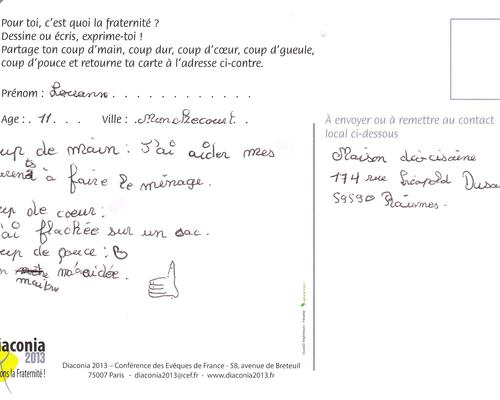 Pour toi, c'est quoi la fraternité ?
Dessine ou écris, exprime-toi !
Partage ton coup d'main, coup dur, coup d'cœur, coup d'gueule,
coup d'pouce et retourne ta carte à l'adresse ci-contre.
Prénom :
Age : 11 . . . Ville : Monchecourt .
up de main : J'ai aider mes
arents à faire le ménage.
up de coeur :
ai flachée sur un sac.
up de pouce :
n maître m'a aidée.
À envoyer ou à remettre au contact
local ci-dessous
Maison diocisaine
174 rue Léopold Dusa
59590 Raismes.
iaconia
2013
ons la Fraternité !
Diaconia 2013 – Conférence des Evêques de France - 58, avenue de Breteuil
75007 Paris - diaconia2013@cef.fr - www.diaconia2013.fr